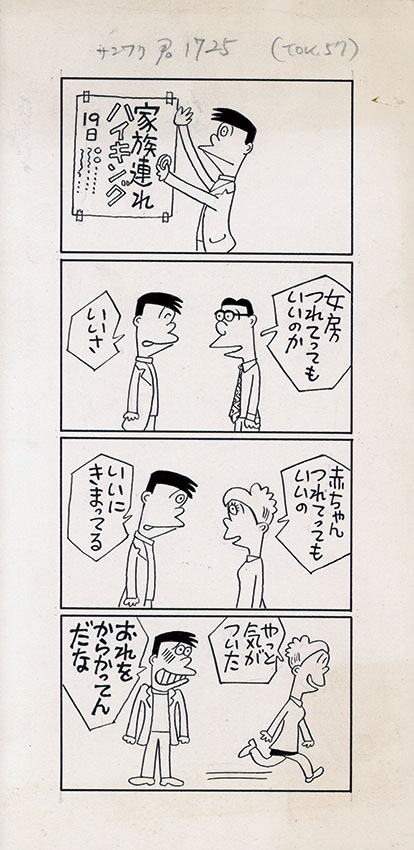 サンワリ君 1725
家族連れ
ハイキング
19日
女房
つれてっても
いいのか
いいさ
赤ちゃん
つれてっても
いいの
いいに
きまってる
やっと
気が
ついた
おれを
からかってん
だな